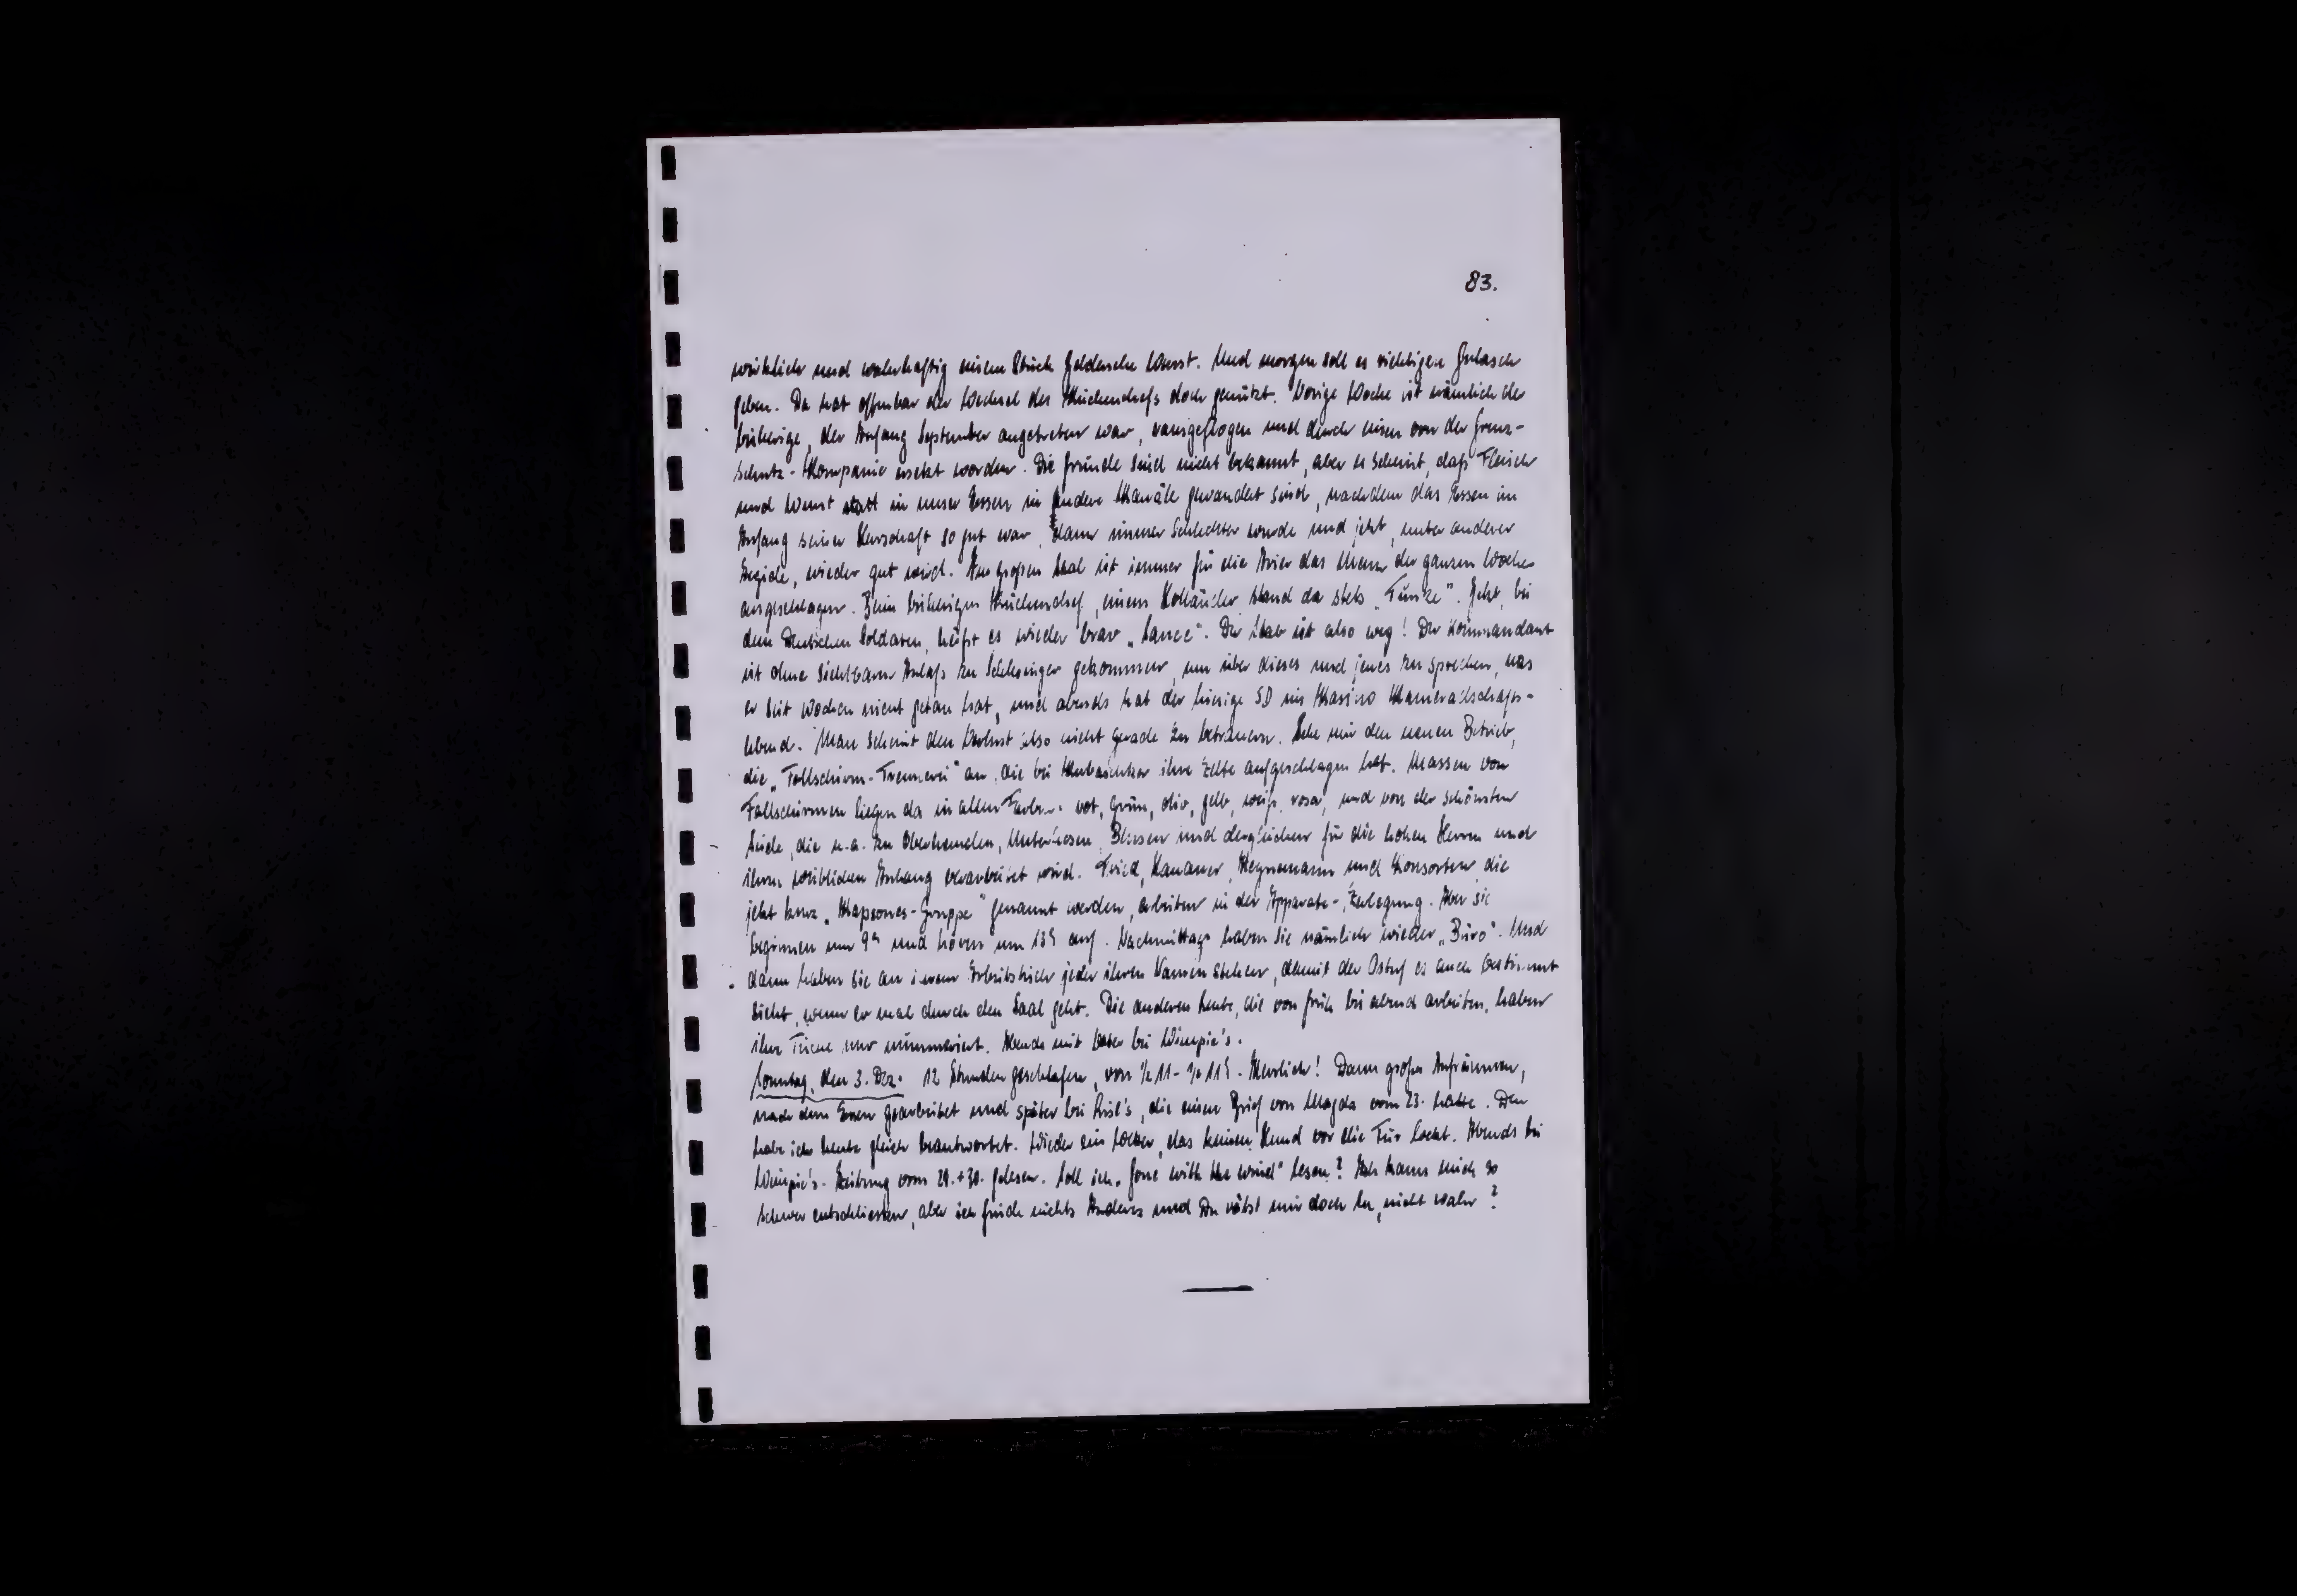 83.
wirklich und wahrhaftig einen Stück Geldersche Wurst. Und morgen soll es richtigen Gulasch
geben. Da hat offenbar der Wechsel des Küchenchefs doch genützt. Vorige Woche ist nämlich der
bisherige, der Anfang September angetreten war, rausgeflogen und durch einen von der Grenz-
schutz-Kompanie ersetzt worden. Die Gründe sind nicht bekannt, aber es scheint, daß Fleisch
und Wurst statt in unser Essen in andere Kanäle gewandert sind, nachdem das Essen im
Anfang seiner Herrschaft so gut war, dann immer schlechter wurde und jetzt, unter anderer
Aegide, wieder gut wird. Im großen Saal ist immer für die Arier das Menu der ganzen Woche
angeschlagen. Beim bisherigen Küchenchef, einem Holländer stand da stets „Tunke". Jetzt, bei
dem deutschen Soldaten, heißt es wieder brav „Sauce". Der Stab ist also weg! Der Kommandant
ist ohne sichtbaren Anlaß zu Schlesinger gekommen, um über dieses und jenes zu sprechen, was
er seit Wochen nicht getan hat, und abends hat der hiesige SD im Kasino Kameradschafts-
abend. Man scheint den Verlust also nicht gerade zu betrauern. Sehe mir den neuen Betrieb,
die „Fallschirm-Trennerei" an, die bei ihre Zelte aufgeschlagen hat. Massen von
Fallschirmen liegen da in allen Farben: rot, grün, oliv, gelb, weiß, rosa, und von der schönsten
Seide, die u.a. zu Oberhemden, Unterhosen, Blusen und dergleichen für die hohen Herren und
ihren weiblichen Anhang verarbeitet wird. Fried, Hanauer, Heynemann und Konsorten, die
jetzt kurz „Kapeones-Gruppe" genannt werden, arbeiten in der Apparate-Zerlegung. Aber sie
beginnen um 9h und hören um 12h auf. Nachmittags haben sie nämlich wieder „Büro". Und
dann haben sie an ihrem Arbeitstisch jeder ihren Namen stehen, damit der Ostuf es auch bestimmt
sieht, wenn er mal durch den Saal geht. Die anderen Leute, die von früh bis abend arbeiten, haben
ihre Tische nur nummeriert. Abends mit bei Wimpie's.
Sonntag, den 3. Dez. 12 Stunden geschlafen, von ½ 11 - ½ 11h. Herrlich! Dann großes Aufräumen,
nach dem Essen gearbeitet und später bei , die einen Brief von Magda vom 23. hatte. Den
habe ich heute gleich beantwortet. Wieder ein Wetter, das keinen Hund vor die Tür lockt. Abends bei
Wimpie's. Zeitung vom 29.+30. gelesen. Soll ich „Gone with the wind" lesen? Ich kann mich so
schwer entschliessen, aber ich finde nichts Anderes und Du rätst mir doch zu, nicht wahr?